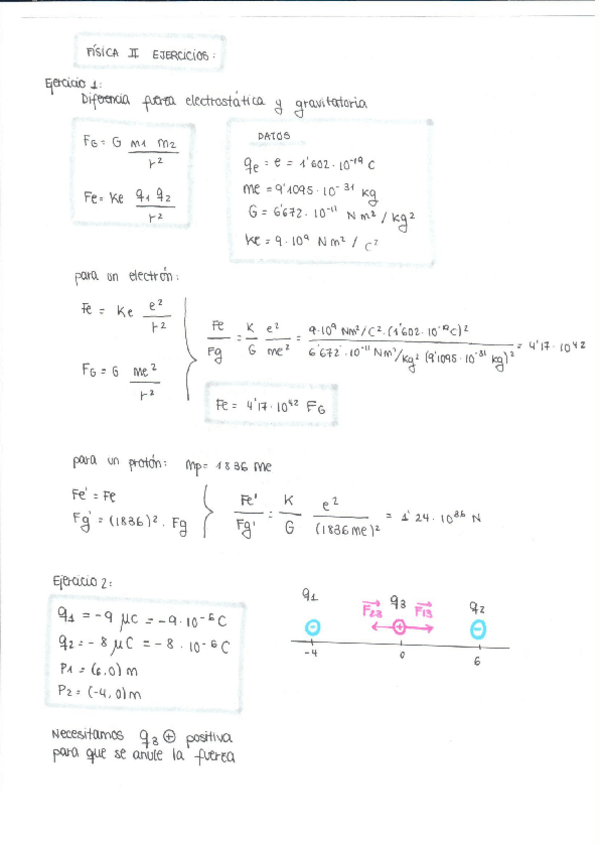 FÍSICA II EJERCICIOS:
Ejercicio 1:
Diferencia fuerza electrostática y gravitatoria
FG = G m1 m2 / r²
Fe = Ke q1 q2 / r²
DATOS
qe = e = 1'602 · 10⁻¹⁹ C
me = 9'1095 · 10⁻³¹ kg
G = 6'672 · 10⁻¹¹ N m² / kg²
Ke = 9 · 10⁹ N m² / C²
para un electrón:
Fe = Ke e² / r²
FG = G me² / r²
Fe / Fg = K / G e² / me² = 9·10⁹ Nm²/C² · (1'602 · 10⁻¹⁹C)² / 6'672 · 10⁻¹¹ Nm²/kg² (9'1095 · 10⁻³¹ kg)² = 4'17 · 10⁴²
Fe = 4'17 · 10⁴² FG
para un protón: mp = 1836 me
Fe' = Fe
Fg' = (1836)² · Fg
Fe' / Fg' = K / G e² / (1836 me)² = 1'24 · 10³⁶ N
Ejercicio 2:
q1 = -9 μC = -9 · 10⁻⁶ C
q2 = -8 μC = -8 · 10⁻⁶ C
P1 = (6,0) m
P2 = (-4,0) m
q1 q3 q2
F23 F13
- + -
-4 0 6
Necesitamos q3 ⊕ positiva
para que se anule la fuerza